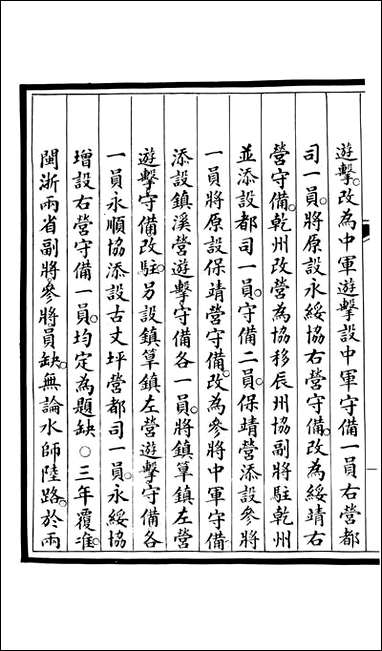 遊擊。改為中軍遊擊設中軍守備一員右營都
司一員。將原設永綏協右營守備。改為綏靖右
營守備。乾州改營為協移辰州協副將駐乾州
並添設都司一員。守備二員。保靖營添設參將
一員將原設保靖營守備。改為參將中軍守備
添設鎮溪營遊擊守備各一員。將鎮筸鎮左營
遊擊守備改駐。另設鎮筸鎮左營遊擊守備各
一員永順協添設古丈坪營都司一員。永綏協
增設右營守備一員。均定為題缺○三年覆准。
閩浙兩省副將參將員缺。無論水師陸路。於兩